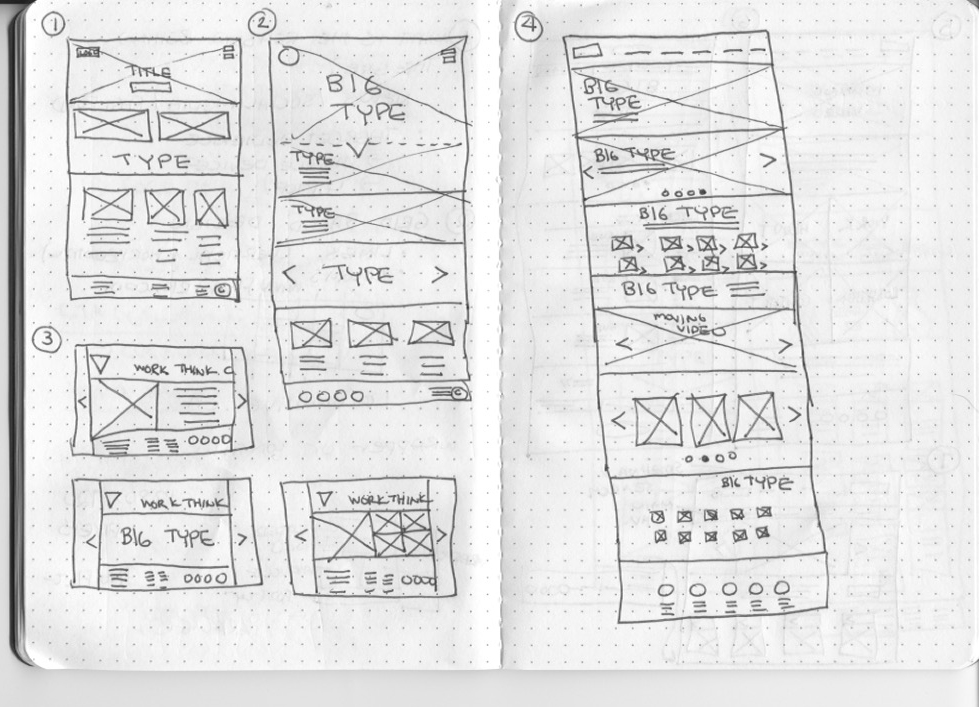 ①
LOGO
TITLE
TYPE
©
②
BIG
TYPE
TYPE
TYPE
TYPE
©
③
WORK THINK C
WORK THINK
BIG TYPE
WORK THINK
④
BIG
TYPE
BIG TYPE
BIG TYPE
BIG TYPE
MOVING
VIDEO
BIG TYPE